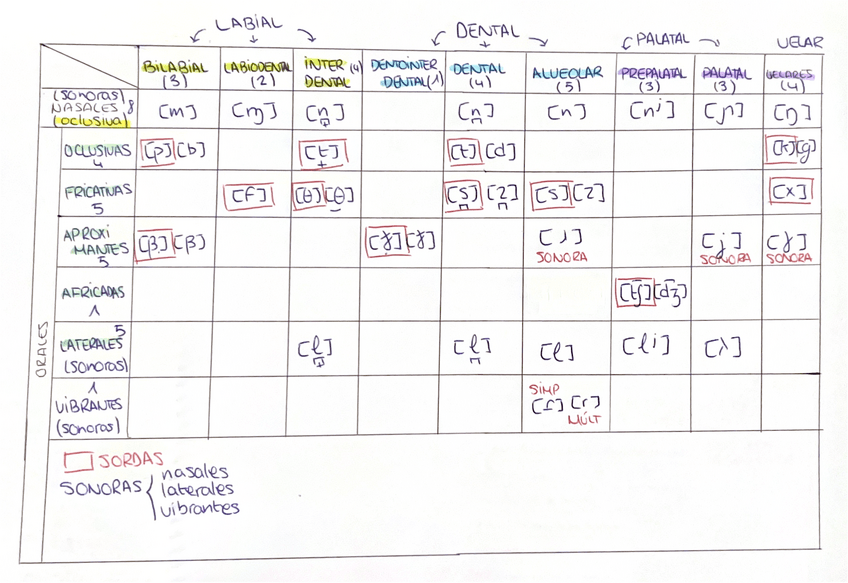 LABIAL DENTAL PALATAL VELAR
BILABIAL (3) LABIODENTAL (2) INTER DENTAL (4) DENTOINTER DENTAL (1) DENTAL (4) ALVEOLAR (5) PREPALATAL (3) PALATAL (3) VELARES (4)
(sonoras) NASALES 8 (oclusiva) [m] [ɱ] [n̟] [n̪] [n] [nʲ] [ɲ] [ŋ]
ORALES
OCLUSIVAS 4 [p] [b] [t̟] [t] [d] [k] [g]
FRICATIVAS 5 [f] [θ] [θ̬] [s̪] [z̪] [s] [z] [x]
APROXI MANTES 5 [β̞] [β] [ɹ] SONORA [j] SONORA [ɣ] SONORA
AFRICADAS 1 [tʃ] [dʒ]
LATERALES 5 (sonoras) [l̟] [l̪] [l] [lʲ] [ʎ]
1 VIBRANTES (sonoras) SIMP [ɾ] [r] MÚLT
SORDAS
SONORAS
nasales
laterales
vibrantes